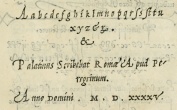 Aabcdefghiklmnopqrsſstu
xyz&.
&
Palatinus Scribebat Romæ apud Pe
regrinum.
Anno Domini. M. D. XXXXV.